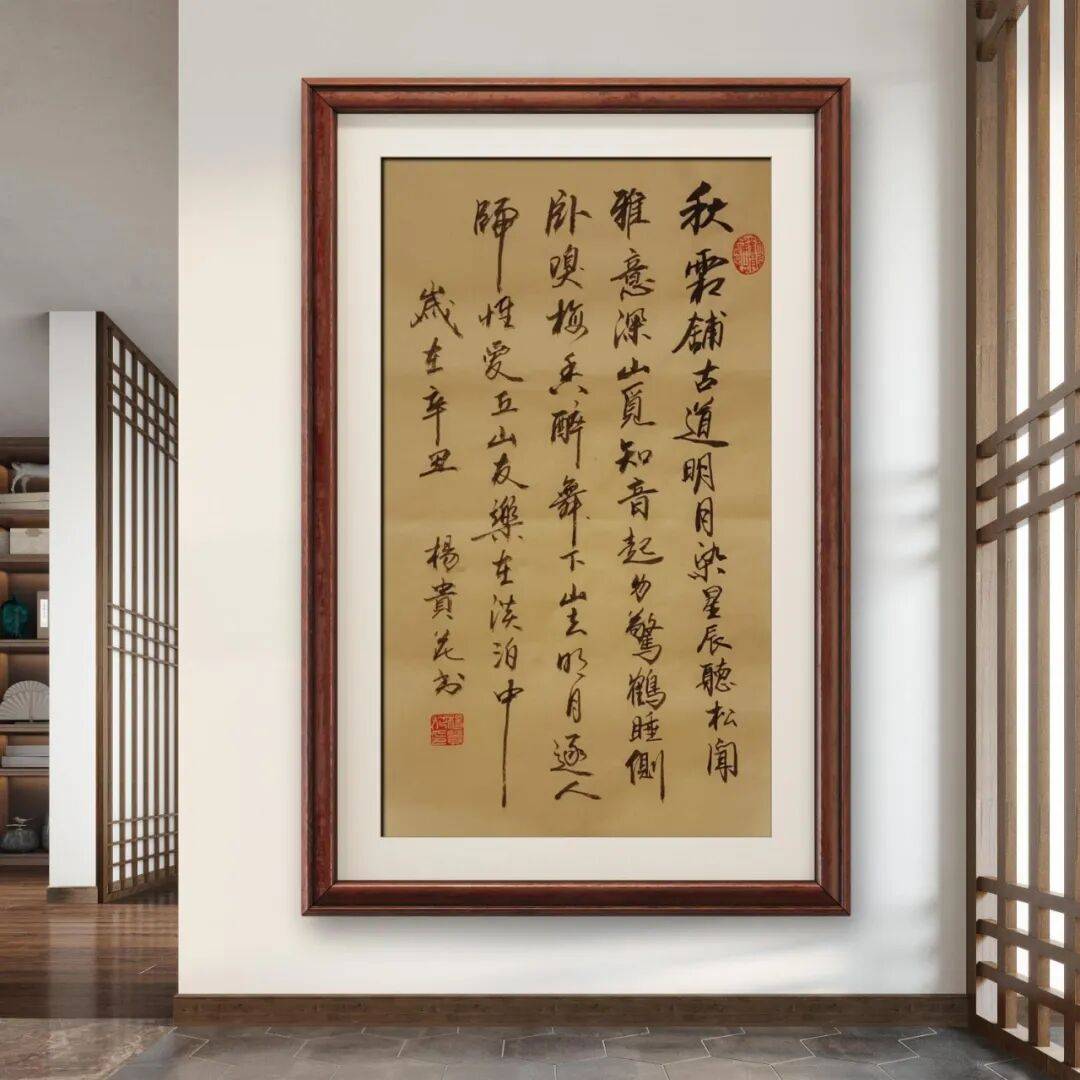 秋霜舖古道明月染星辰聽松聞
雅意深山覓知音起勿驚鶴睡側
卧嗅梅香醉舞下山去明月逐人
歸惟愛丘山友樂在淡泊中
歲在辛丑 楊貴花书